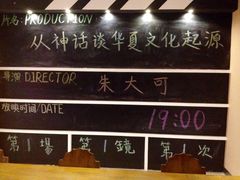 片名:PRODUCTION
从神话谈华夏文化起源
导演 DIRECTOR 朱大可
放映时间/DATE
19:00
第1場 第1鏡 第1次